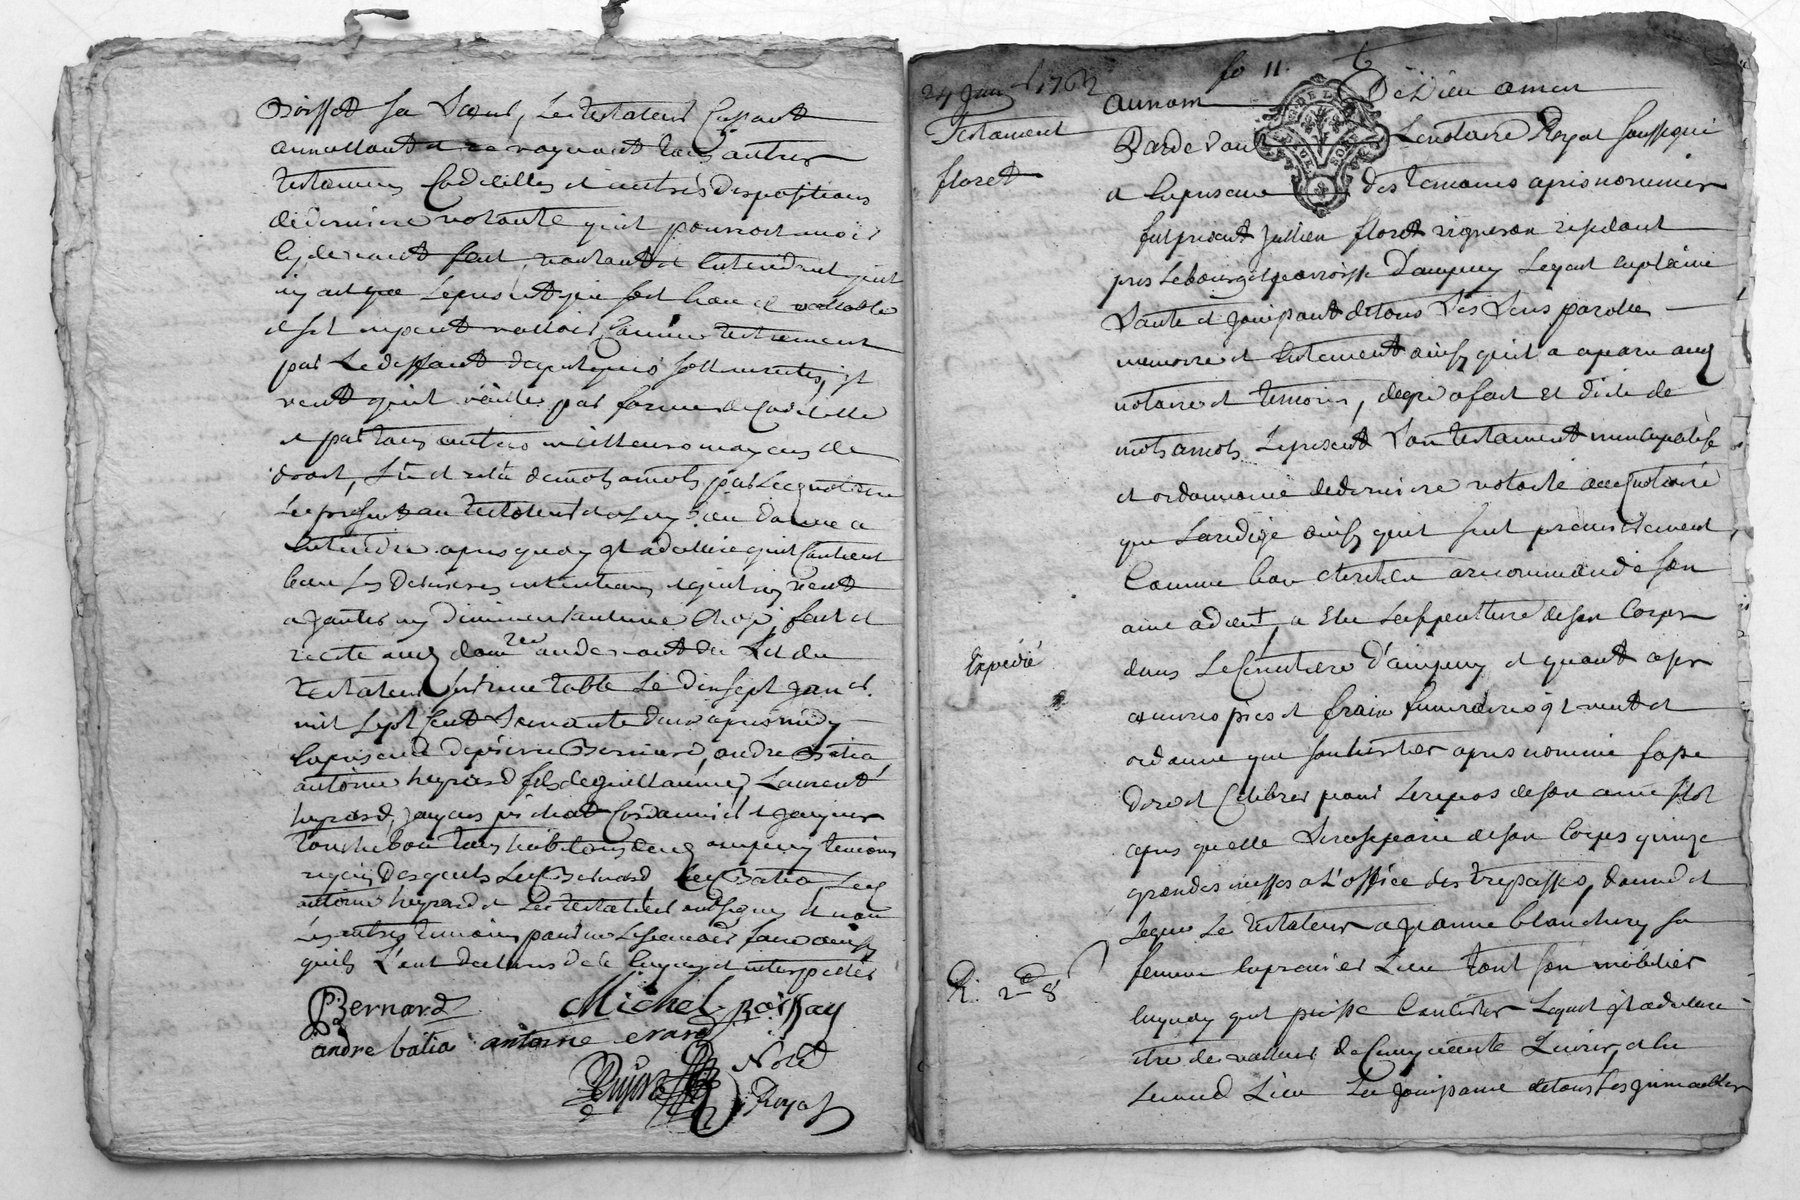 Boisset sa Sœur, Le testateur Cassant
annullant et revoquant tous autres
testamens Codicilles et autres dispositions
de derniere volonté quil pourroit avoir
cy devant fait, voulant et entendant quil
ny ait que le present qui soit bon et vallable
et sil ne peut valloir Comme testament
par le deffaut de quelques sollennites, il
veut quil vaille par forme de Codicille
et par tous autres meilleurs moyens de
droit, Lû et relû de mots a mots par Lecq notaire
Le present au testateur
entendre apres quoy il a declaré quil Contient
bien ses dernieres intentions et quil ny veut
ajouter ny diminuer aucune Chose, fait et
recité aud. au devant du Lit du
testateur sur une table Le dix sept janv.
mil sept Cent Soixante deux apres midy
en presence de pierre Bernard, andre Batia
antoine heyrard fils de guillaume, Laurent
heyrard, jacques pichat Cordonnier et
tous habitans dud. ampuy temoins
requis desquels Led. Bernard Led. Batia, Led.
antoine heyrard et Led. testateur ont signé et non
Les autres temoins pour ne Le scavoir faire ainsy
quils L'ont declaré de ce enquis et interpellés
Bernard Michel Boissay
andre batia antoine erard
Dujost Not.
Royal
fo 11.
24 Janv. 1762
Testament
floret
au nom De Dieu amen
Pardevant Le notaire Royal soussigné
et en presence des temoins apres nommés
fut present Jullien floret vigneron residant
pres Le bourg et parroisse D'ampuy Lequel en pleine
Santé et jouissant de tous Ses Sens parolle
memoire et entendement ainsy quil a aparu aud.
notaire et temoins, de gré a fait et dicté de
mots a mots Le present Son testament nuncupatif
et ordonnance de derniere volonté aud. notaire
que La redigé ainsy quil suit premierement
Comme bon chretien a recommandé Son
ame a dieu + a Elu La sepulture de Son Corps
dans Le Cimetiere D'ampuy et quant a ses
œuvres pies et fraix funeraires il veut et
ordonne que Son heritier apres nommé fasse
dire et Celebrer pour Le repos de Son ame sitot
apres qu'elle Sera separée de Son Corps quinze
grandes messes a L'office des trepassés, donne et
Legue Le testateur a jeanne blanchery sa
femme en premier Lieu tout Son mobilier
en quoy quil puisse Consister Lequel il a declaré
etre de valleur de Cinquante Livres, et en
second Lieu La jouissance de tous Ses immeubles
Expedié
R. 2 8